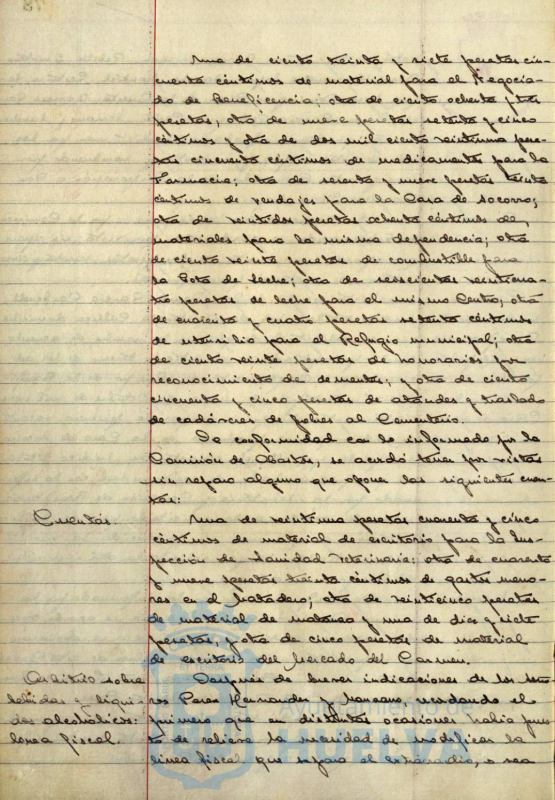 Una de ciento treinta y siete pesetas cin-
cuenta céntimos de material para el Negocia-
do de Beneficencia; otra de ciento ochenta y tres
pesetas, otra de nueve pesetas setenta y cinco
céntimos y otra de dos mil ciento veintiuna pese-
tas cincuenta céntimos de medicamentos para la
Farmacia; otra de sesenta y nueve pesetas treinta
céntimos de vendajes para la Casa de Socorro;
otra de veintidos pesetas ochenta céntimos de
materiales para la misma dependencia; otra
de ciento veinte pesetas de combustible para
la Gota de leche; otra de seiscientas veinticua-
tro pesetas de leche para el mismo Centro, otra
de cuarenta y cuatro pesetas setenta céntimos
de utensilio para el Refugio municipal; otra
de ciento veinte pesetas de honorarios por
reconocimiento de dementes; y otra de ciento
cincuenta y cinco pesetas de ataudes y traslado
de cadáveres de pobres al Cementerio.
De conformidad con lo informado por la
Comisión de Abastos, se acordó tener por vistas
sin reparo alguno que oponer las siguientes cuen-
tas:
Cuentas.
Una de veintiuna pesetas cuarenta y cinco
céntimos de material de escritorio para la Ins-
pección de Sanidad Veterinaria; otra de cuarenta
y nueve pesetas treinta céntimos de gastos meno-
res en el Matadero; otra de veinticinco pesetas
de material de matanza y una de diez y siete
pesetas, y otra de cinco pesetas de material
de escritorio del Mercado del Carmen.
Arbitrio sobre
bebidas y líqui-
dos alcohólicos:
línea fiscal.
Después de breves indicaciones de los Seño-
res Perez Hernandez y Manzano, recordando el
primero que en distintas ocasiones habia pues-
to de relieve la necesidad de modificar la
línea fiscal que separa el extraradio, o sea
Ayuntamiento de
HUELVA